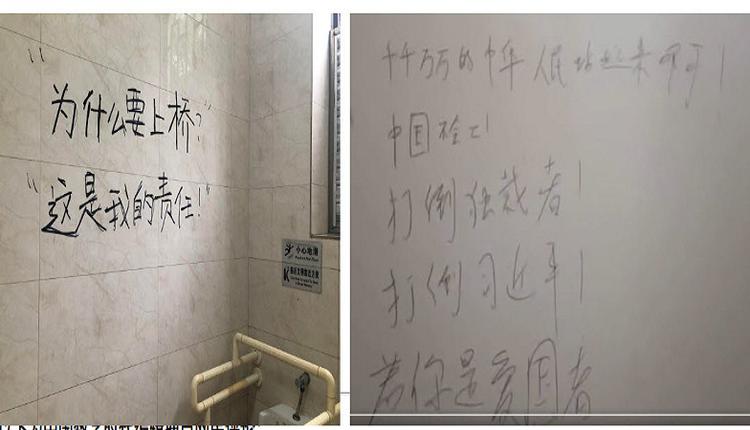 “为什么要上桥？”
“这是我的责任！”
小心地滑
千千万万的中华人民站起来
中国
打倒独裁者！
打倒习近平！
若你是爱国者